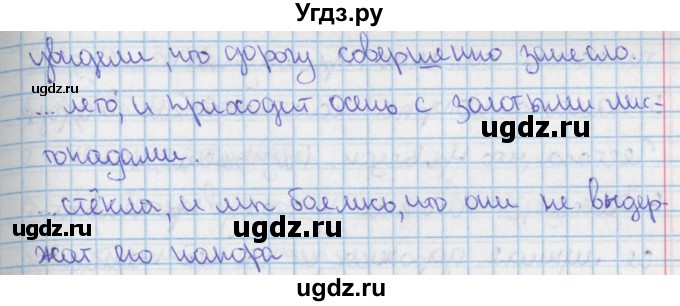 Угдз.ру
увидели, что дорогу совершенно занесло.
...лето, и приходит осень с золотыми лис-
топадами.
...стёкла, и мы боялись, что они не выдер-
жат его напора
ugdz.ru
ugdz.ru
ugdz.ru
ugdz.ru
ugdz.ru
ugdz.ru
ugdz.ru